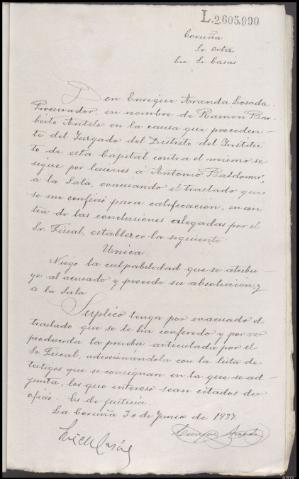 L.2605,990
Coruña
Don Enrique Aranda Losada
Procurador, en nombre de Ramon
en la causa que proceden-
te del Juzgado del Distrito del Institu-
to de esta Capital contra el mismo se
sigue por lesiones a Antonio
a la Sala, evacuando el traslado que
se me confirió para calificación, en
de las conclusiones alegadas por el
Sr. Fiscal, establezco la siguiente
Unica
Niego la culpabilidad que se atribu-
ye al acusado y procede su absolucion y
a la Sala
Suplico tenga por evacuado el
traslado que se le ha conferido y por re-
producida la prueba articulada por el
Sr. Fiscal, adicionándola con la lista de
testigos que se consignan en la que se ad-
junta, los que intereso sean citados de
oficio. Es de justicia
La Coruña 30 de Junio de